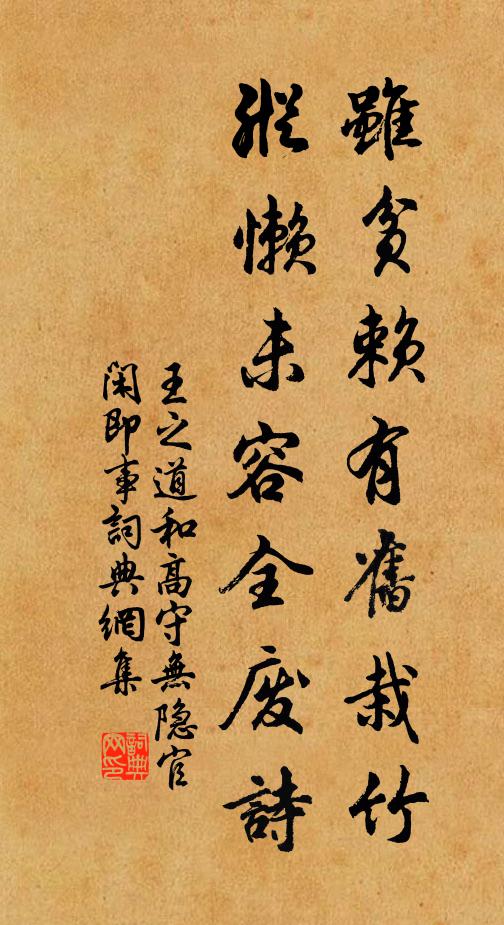 雖貧賴有舊栽竹
縱懶未容全廢詩
王之道和高守無隐官
閑即事詞典網集
詞典網印